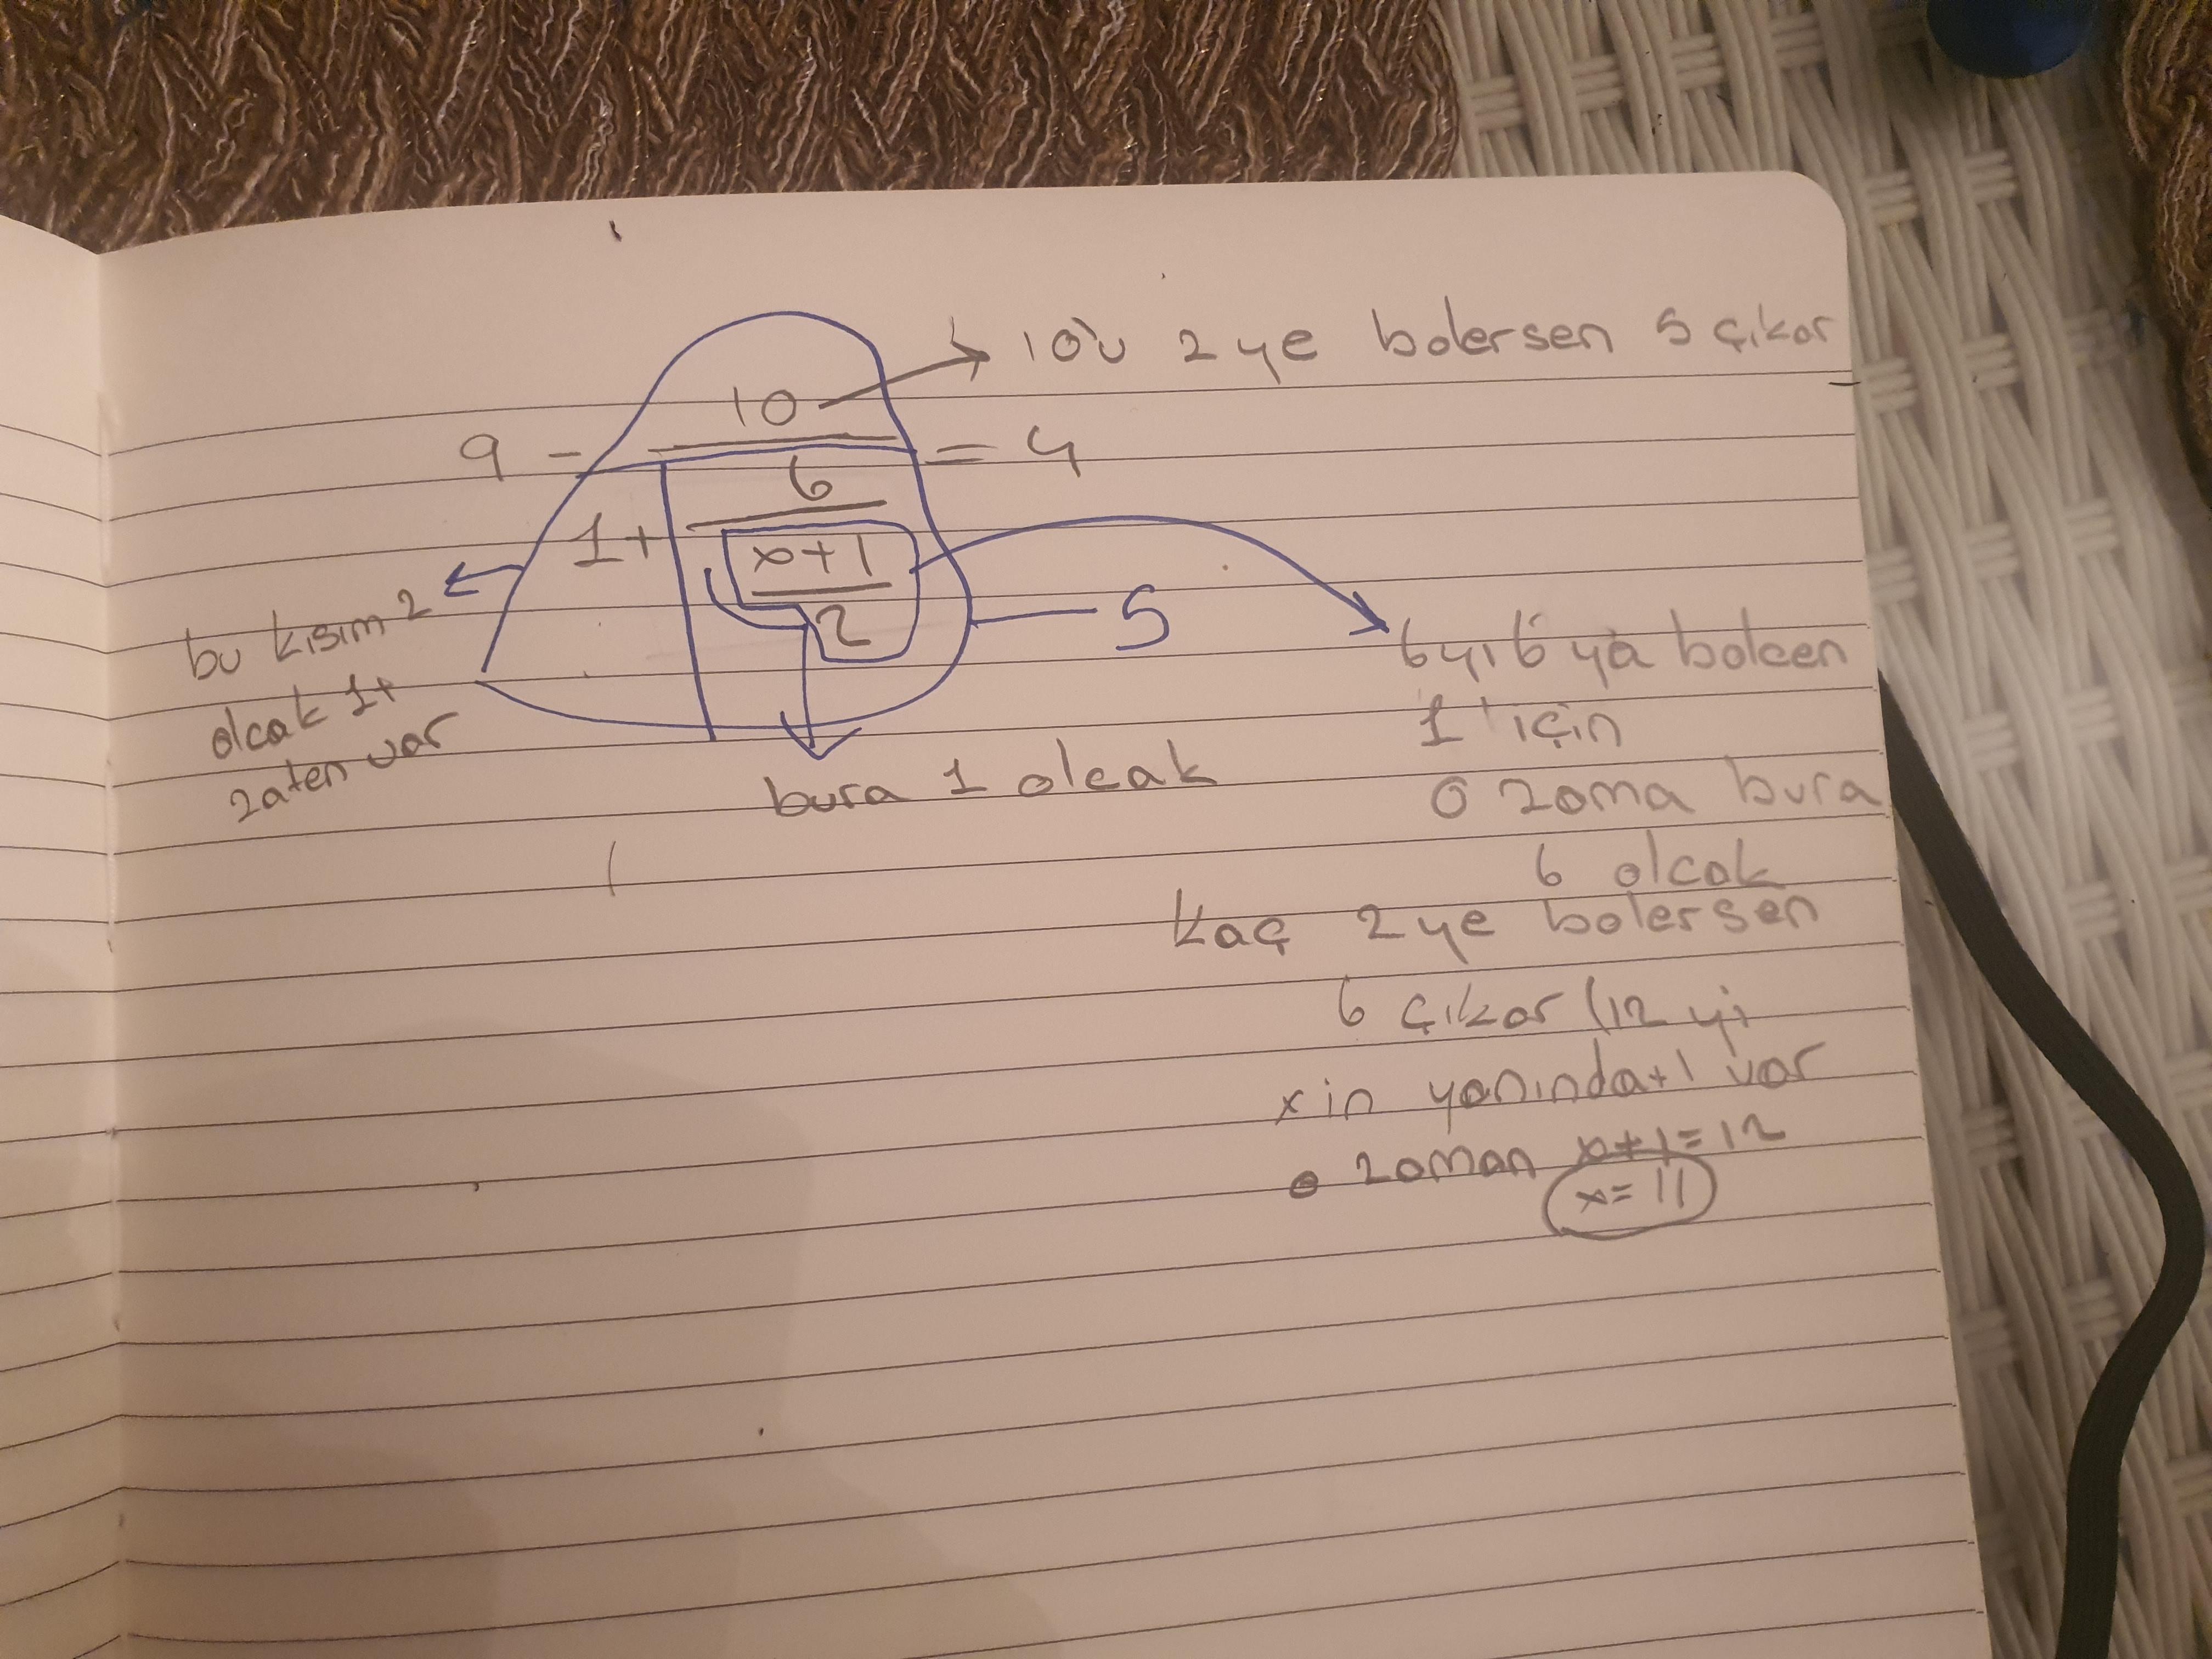 10'u 2 ye bolersen 5 çıkar
9 - 10 = 4
6
1+
x+1
2
5
bu kısım 2
olcak 1+
zaten var
bura 1 olcak
6yı 6 ya bolcen
1 için
o zama bura
6 olcak
kaç 2 ye bolersen
6 çıkar (12 yi
x in yanında +1 var
o zaman x+1=12
x=11